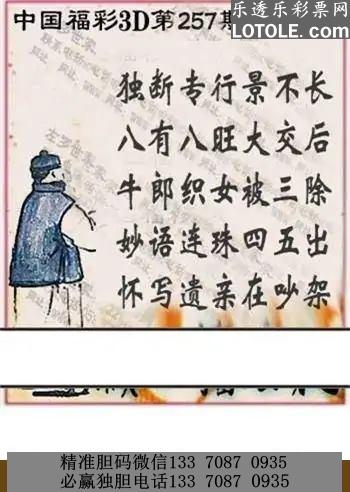 中国福彩3D第257期
乐透乐彩票网
LOTOLE.COM
独断专行景不长
八有八旺大交后
牛郎织女被三除
妙语连珠四五出
怀写遗亲在吵架
精准胆码微信133 7087 0935
必赢独胆电话133 7087 0935